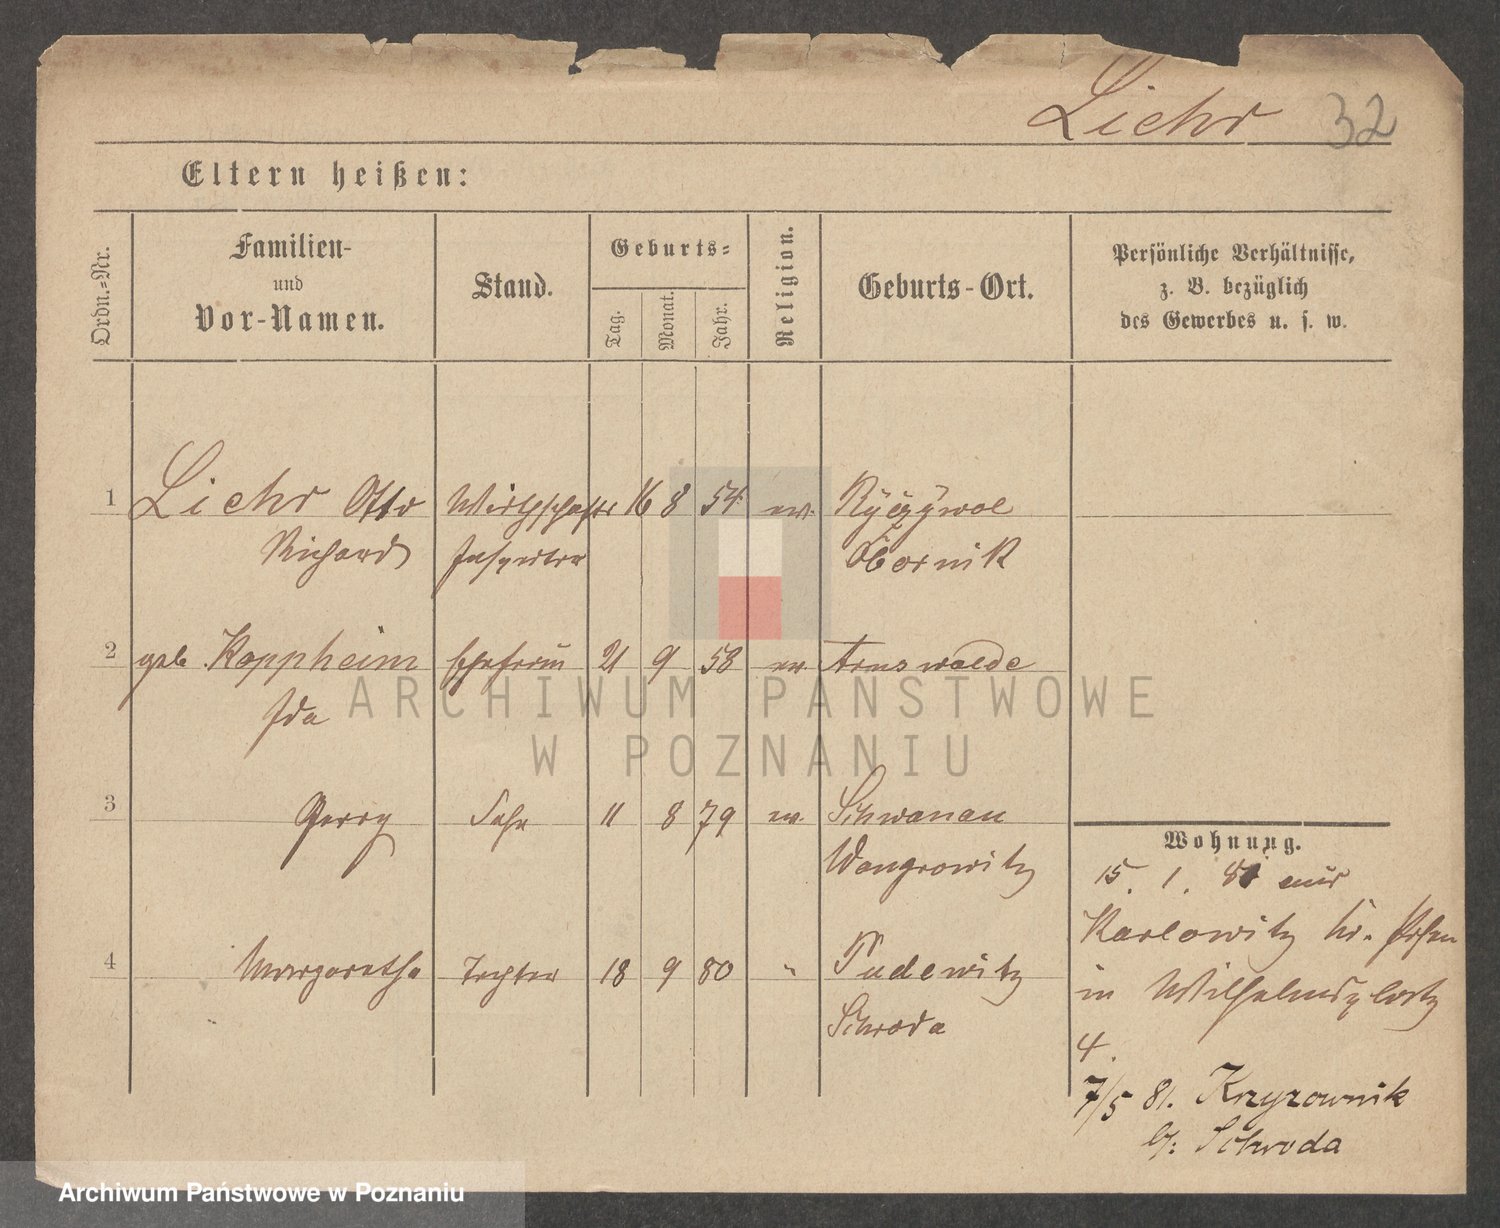 Liehr 32
Eltern heißen:
Ordn.-Nr.
Familien-
und
Vor-Namen.
Stand.
Geburts-
Tag.
Monat.
Jahr.
Religion.
Geburts-Ort.
Persönliche Verhältnisse,
z. B. bezüglich
des Gewerbes u. s. w.
1 Liehr Otto Wirthschafts 16 8 54 ev.
Richard Inspektor Obornik
2 geb. Koppheim Ehefrau 21 9 58 ev Arnswalde
Ida
3 Sohn 11 8 79 ev. Schwanau
Wongrowitz
4 Margaretha Tochter 18 9 80 " Pudewitz
Schroda
Wohnung.
15. 1. 81 aus
Karlowitz Kr. Posen
in Wilhelmsplatz
4.
7/5 81. Krzyzownik
b/: Schroda
ARCHIWUM PAŃSTWOWE
W POZNANIU
Archiwum Państwowe w Poznaniu